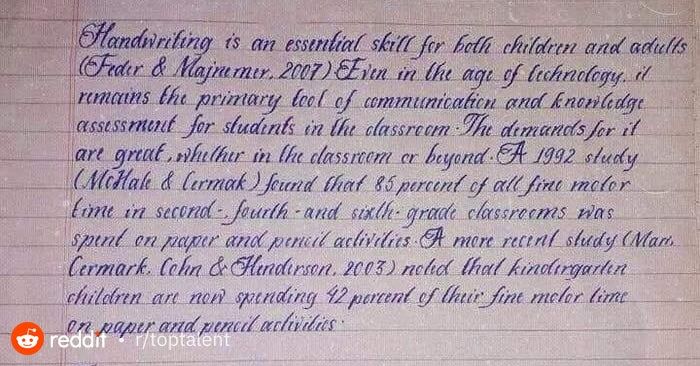 Handwriting is an essential skill for both children and adults
(Feder & Majnemer, 2007) Even in the age of technology, it
remains the primary tool of communication and knowledge
assessment for students in the classroom. The demands for it
are great, whether in the classroom or beyond. A 1992 study
(McHale & Cermak) found that 85 percent of all fine motor
time in second-, fourth-and sixth-grade classrooms was
spent on paper and pencil activities. A more recent study (Marr,
Cermark, Cohn & Henderson, 2003) noted that kindergarten
children are now spending 42 percent of their fine motor time
on paper and pencil activities.
reddit • r/toptalent